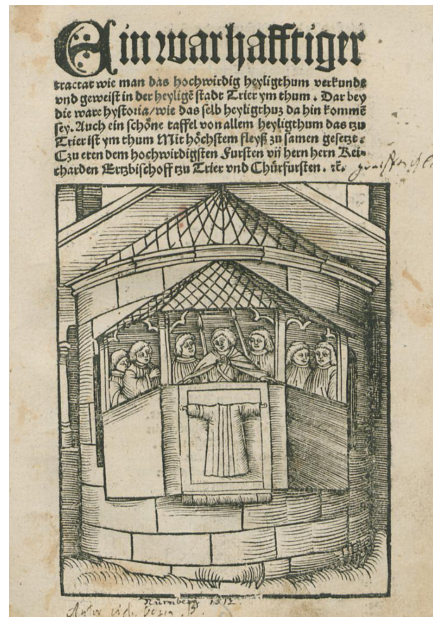 Ein warhafftiger
tractat wie man das hochwirdig heyligthum verkund⸗
vnd geweist in der heyligē stadt Trier ym thum. Dar bey
die ware hystoria/wie das selb heyligthuz da hin kommē
sey. Auch ein schöne taffel von allem heyligthum das tzu
Trier ist ym thum Mit höchstem fleyß zu samen gesetzt⸗
Czu eren dem hochwirdigsten Fursten vn̄ hern hern Rei⸗
charden Ertzbischoff tzu Trier vnd Chürfursten. ⁊c.
Nürnberg 1512